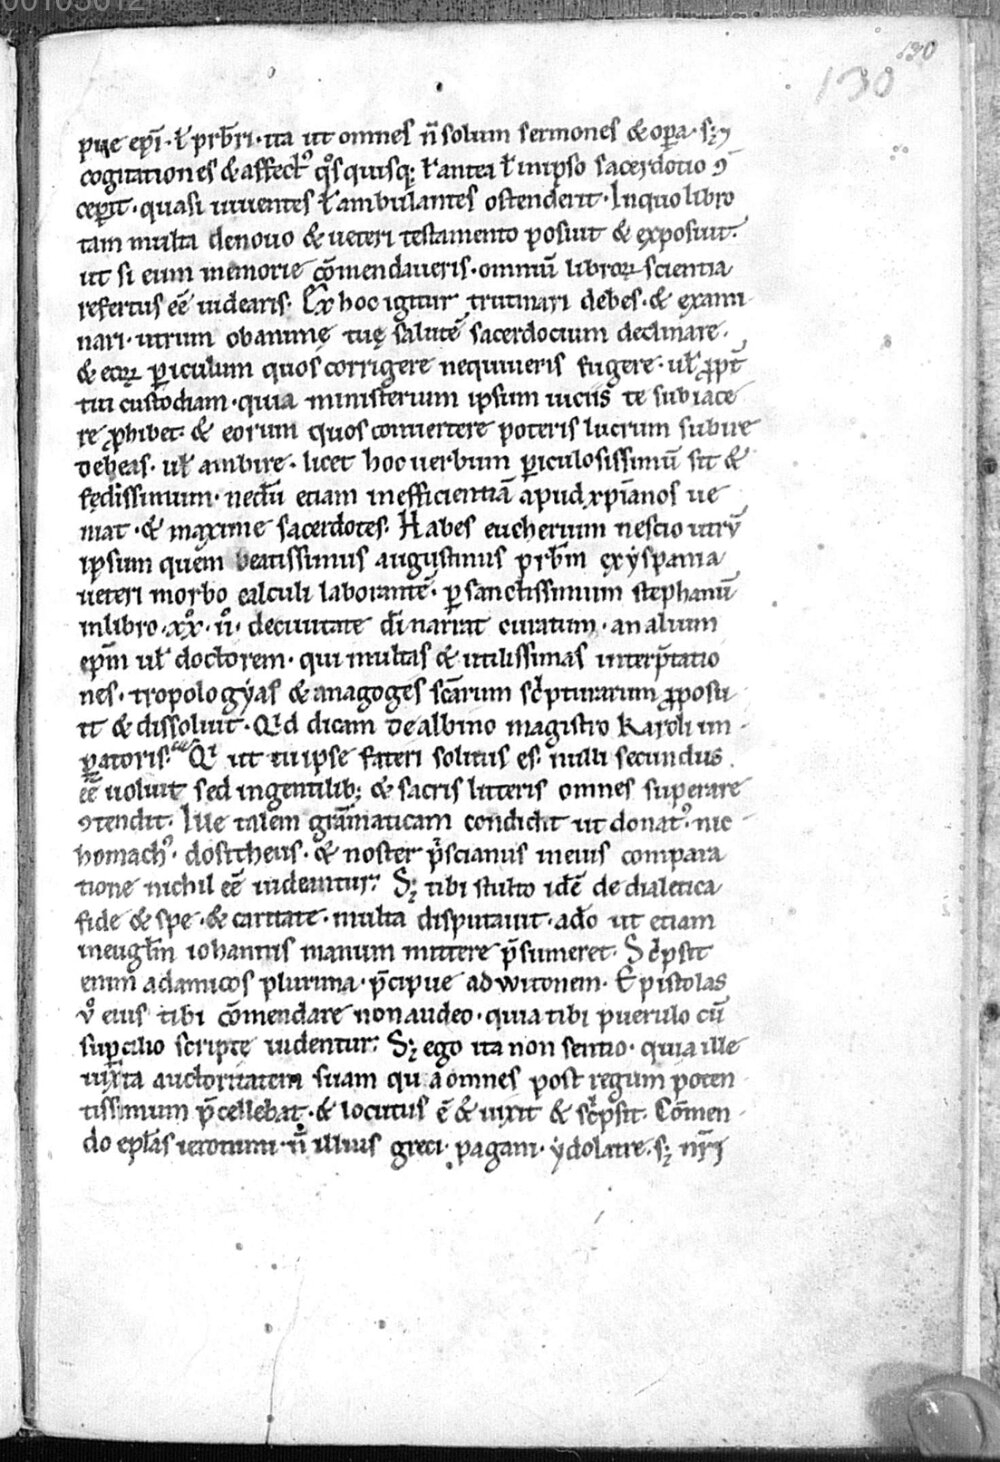 00103012
130
130
pue ep̄i · ł prb̄ri · ita ut omnes n̄ solum sermones & op̲a · sꝫ ⁊
cogitationes & affectꝰ qͦs quisqꝫ ł antea ł in ipso sacerdotio ꝯ
cep̲it · quasi uiuentes ł ambulantes ostenderit · In quo libro
tam multa de nouo & ueteri testamento posuit & exposuit ·
ut si eum memorie cōmendaueris · omniū libroꝝ scientia
refertus eē uidearis · Ex hoc igitur trutinari debes · & exami
nari · utrum ob animę tuę salutē sacerdocium declinare ·
& eoꝝ ꝑiculum quos corrigere nequiueris fugere · uł ꝓpt̄
tui custodiam · quia ministerium ipsum uiciis te subiace
re ꝓhibet · & eorum quos conuertere poteris lucrum subire
debeas · uł ambire · licet hoc uerbum ꝑiculosissimū sit &
fędissimum · nedū etiam in efficientiā apud xp̄ianos ue
niat · & maxime sacerdotes · Habes eucherium nescio utrū
ipsum quem beatissimus augustinus prb̄m ex yspania
ueteri morbo calculi laborantē · ꝑ sanctissimum stephanū
in libro · xͦxͦ · iiͦ · de ciuitate dī narrat curatum · an alium
ep̄m uł doctorem · qui multas & utilissimas interp̄tatio
nes · tropologyas & anagoges scārum scͥpturarum ꝓposu
it & dissoluit · Qͥd dicam de albino magistro Karoli im
ꝑatoris · Qͥ ut tu ipse fateri solitus es · nulli secundus
eē uoluit sed in gentilibꝫ & sacris litteris omnes superare
ꝯtendit · Iste talem grāmaticam condidit ut donatꝰ · nic
homachꝰ · dositheus · & noster pͥscianus in eius compara
tione nichil eē uideantur · Sꝫ tibi stulto idē de dialetica
fide & spe · & caritate · multa disputauit · adͦo ut etiam
in eugl̄m iohannis manum mittere p̄sumeret · Scͥpsit
enim ad amicos plurima · p̄cipue ad witonem · Epistolas
vͦ eius tibi cōmendare non audeo · quia tibi puerulo cū
suꝑcilio scripte uidentur · Sꝫ ego ita non sentio · quia ille
iuxta auctoritatem suam qua omnes post regum poten
tissimum p̄cellebat · & locutus ē & uixit & scͥpsit · Cōmen
do epl̄as ieronimi · n̄ illius greci · pagani · ydolatre · sꝫ nr̄i